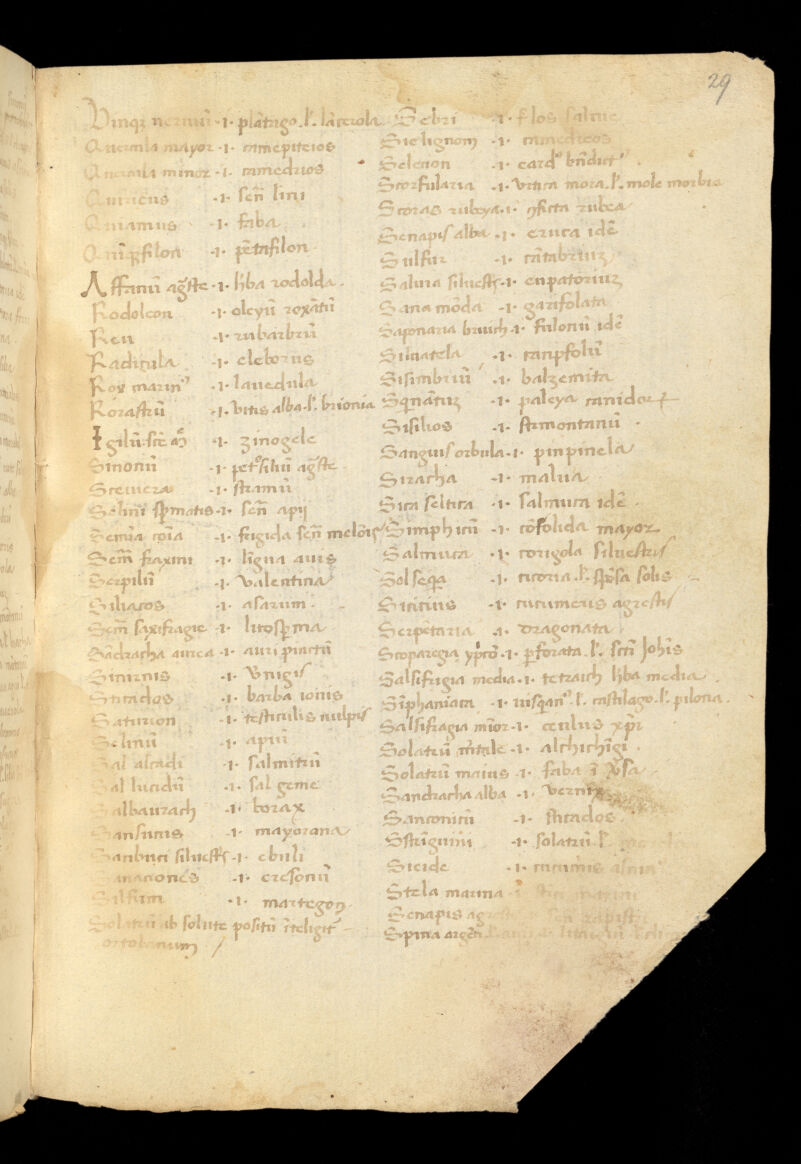 29
Vinqz neriuū ·ı· plātago ·l'· lācerola
Quercula mayor ·ı· camepiteios
Quercula minor ·ı· camedrios
Quiricus ·ı· sen̄ lini
Quiamus ·ı· faba
Quīqfilon ·ı· pētafilon
Affanū ag̃ste ·ı· hba rodolda
Rodoleon ·ı· oleyū roxātū
Reu ·ı· rubarbrū
Radicula ·ı· eleborus
Ros marinꝰ ·ı· lauedula
Rorastrū ·ı· vitis alba ·l'· brionia
Igilū sc̄e ·ı· zinogele
Sinoniū ·ı· petᵒsiliū ag̃ste
Sceuera ·ı· stramū
Seliny spmatis ·ı· sen̄ apij
Semīa ·ı· frigida sen̄ melōis
Sem̄ fraxini ·ı· līgua auis
Serpilū ·ı· valentina
Siliacos ·ı· asarum
Sem̄ saxifragie ·ı· litospma
Sādracha aurea ·ı· auri pimctū
Sinirnis ·ı· vnigis
Sticados ·ı· barba iouis
Satirion ·ı· testiculis uulpis
Selinū ·ı· apiū
Sal alcadi ·ı· salmitrū
Sal lucidū ·ı· sal geme
Salbaurach ·ı· borax
Sansucus ·ı· mayorana
Sanbuci siluest̄s ·ı· ebuli
Sanacionēs ·ı· cresoniū
Silfium ·ı· martegon
Solatrū ab solute positū īteligit̄
ortolanum
Sebri ·ı· flos saluie
Sielignom ·ı· camedreos
Selenon ·ı· cardᵒ bn̄dictꝰ
Scorfularia ·ı· vrtica mora ·l'· mole morbis
Scoras rubeya ·ı· ꝯficta rubea
Senapis alba ·ı· eruca idē
Sulfur ·ı· cātabriuz
Saluia siluest̄s ·ı· eupatoriuz
Sana mōda ·ı· garifolata
Saponaria ·ı· fuloniū idē
Siluatela ·ı· canpfoliū
Sisimbriū ·ı· balzemita
Sqinātuz ·ı· paleya camidor
Sisilios ·ı· sermontanū
Sanguis orbula ·ı· pinpinela
Siracha ·ı· malua
Sica seltica ·ı· saliuuca idē
Simphitū ·ı· cōsolida mayor
Saliuuca ·ı· corigola siluestris
Solseqa ·ı· cicoria ·l'· spōsa solis
Sicicius ·ı· cucumeris agrestis
Serpētaria ·ı· dragonata
Scoparegia ypc̄o ·ı· pforata ·l'· sc̄ti Johīs
Salsifrigia media ·ı· tetraich hba media
Sīphaniaca ·ı· iusqanᵒ ·l'· castilago ·l'· pilona
Salsifragia mīor ·ı· ceulus xp̄i
Solatrū mītale ·ı· alchichīgi
Solatrū maius ·ı· faba īv̄sa
Sandracha alba ·ı· vernix
Sanconicū ·ı· sticados
Sstriguini ·ı· solatrū ·l'·
Sicide ·ı· cucumis
Stela marina ·ı·
Senapis agrest
Spina argēti